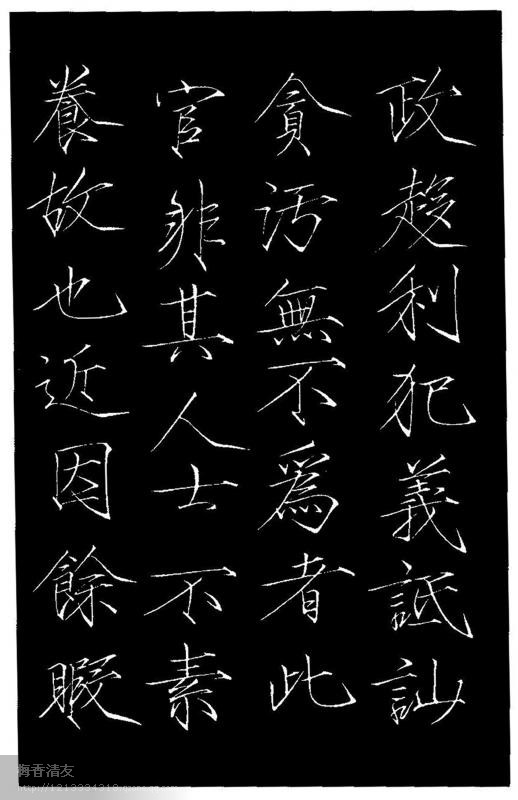 政趍利犯義詆訕
貪污無不爲者此
官非其人士不素
養故也近因餘暇
梅香清友